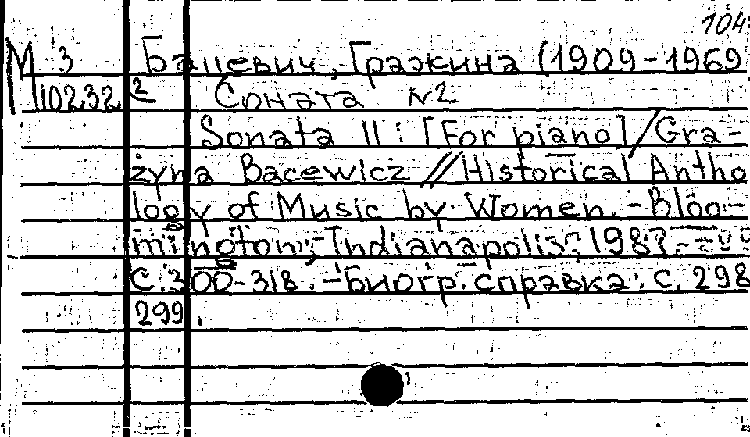 104
М 3 Бацевич, Гражина (1909-1969
10232 2 Соната N2
Sonata II: [For piano] / Gra-
żyna Bacewicz // Historical Antho
logy of Music by Women. - Bloo-
mington; Indianapolis, 1987.
С. 300-318. - Биогр. справка: с. 298
299.